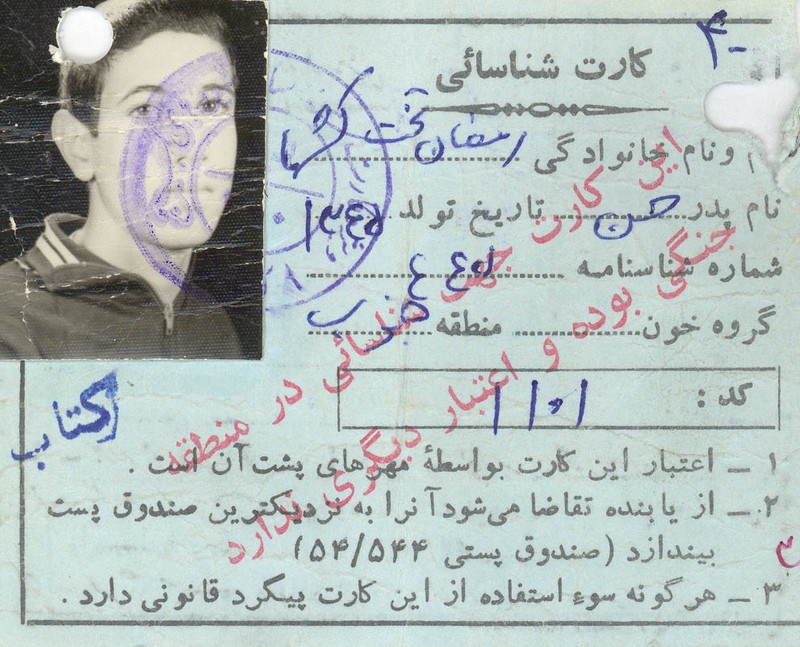 کارت شناسائی
۴۰
نام ونام خانوادگی رمضان تخت کشها
نام پدر حسن تاریخ تولد ۱۳۴۵
شماره شناسنامه
گروه خون منطقه
کد : ۱۱۰۱
کتاب
۱ ــ اعتبار این کارت بواسطهٔ مهرهای پشت آن است .
۲ ــ از یابنده تقاضا می‌شود آنرا به نزدیکترین صندوق پست
بیندازد (صندوق پستی ۵۴/۵۴۴)
۳ ــ هرگونه سوء استفاده از این کارت پیگرد قانونی دارد .
این کارت جهت شناسائی در منطقه
جنگی بوده و اعتبار دیگری ندارد